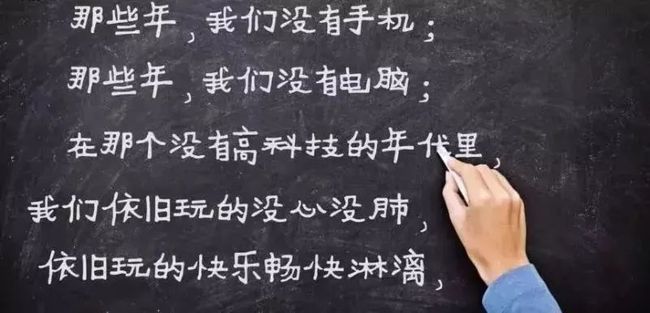 那些年，我们没有手机；
那些年，我们没有电脑；
在那个没有高科技的年代里，
我们依旧玩的没心没肺，
依旧玩的快乐畅快淋漓，